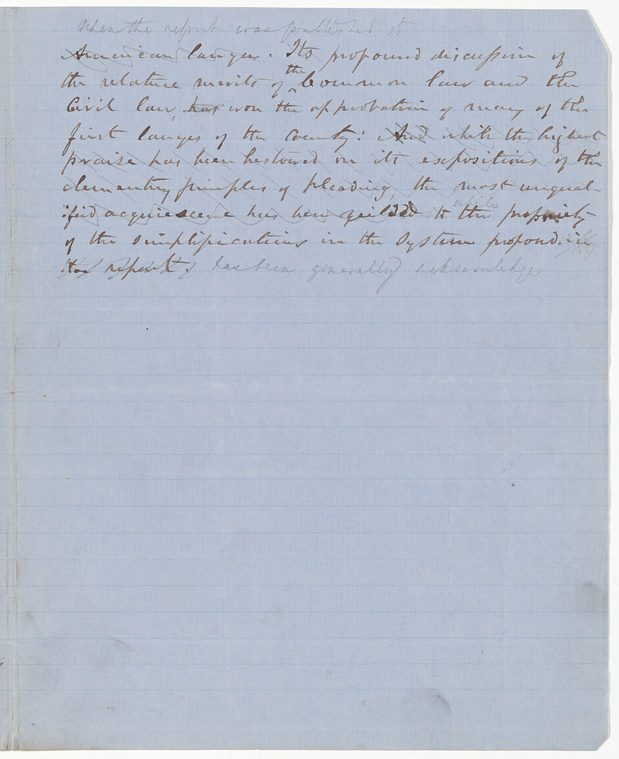 When the report was published it
American lawyers. Its profound discussion of
the relative merits of the Common law and the
Civil law, has won the approbation of many of the
first lawyers of the County: And while the highest
praise has been bestowed on its expositions of the
elementry principles of pleading, the most unqual-
ified acquiescence has been yeilded to the propriety
of the simplifications in the System propond. in
the report. has been generally acknowledge